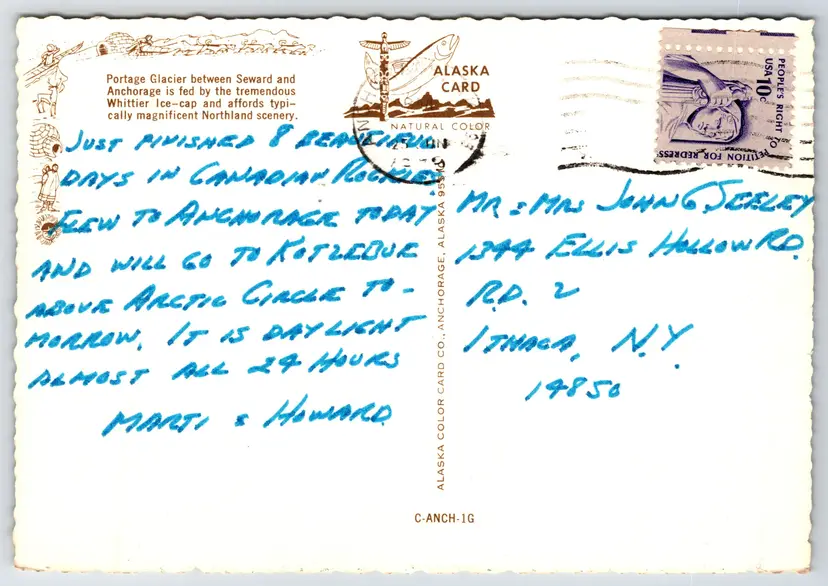 Portage Glacier between Seward and
Anchorage is fed by the tremendous
Whittier Ice-cap and affords typi-
cally magnificent Northland scenery.
ALASKA
CARD
NATURAL COLOR
PEOPLE'S RIGHT TO
PETITION FOR REDRESS
USA 10c
JUST FINISHED 8 BEAUTIFUL
DAYS IN CANADIAN ROCKIES
FLEW TO ANCHORAGE TODAY
AND WILL GO TO KOTZEBUE
ABOVE ARCTIC CIRCLE TO-
MORROW. IT IS DAYLIGHT
ALMOST ALL 24 HOURS
MARTI & HOWARD
MR & MRS JOHN G SEELEY
1344 ELLIS HOLLOW RD.
R.D. 2
ITHACA, N.Y.
14850
ALASKA COLOR CARD CO., ANCHORAGE, ALASKA
C-ANCH-1G